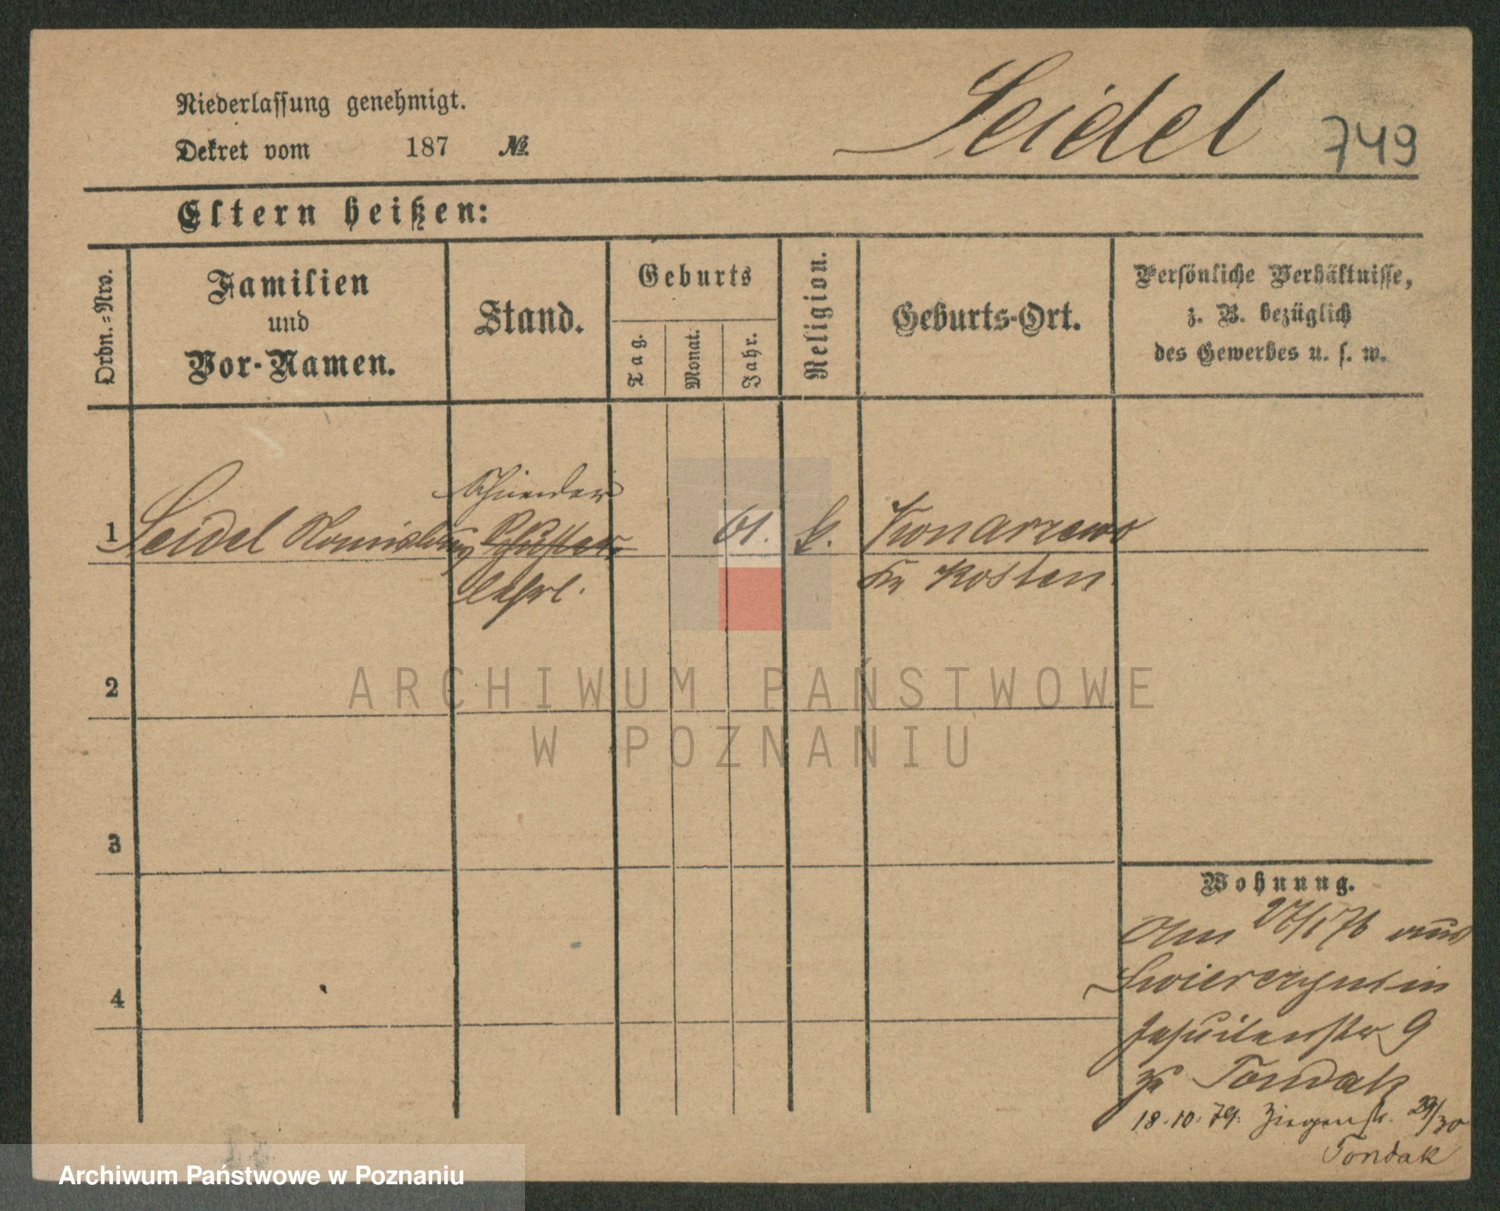 Niederlassung genehmigt.
Dekret vom 187 №
Seidel
749
Eltern heißen:
Ordn.-Nro.
Familien
und
Vor-Namen.
Stand.
Geburts
Tag.
Monat.
Jahr.
Religion.
Geburts-Ort.
Persönliche Verhältnisse,
z. B. bezüglich
des Gewerbes u. s. w.
Schneider
1 Seidel Schuster 61. k. Konarzewo
Lehrl. Kr Kosten
ARCHIWUM PAŃSTWOWE
W POZNANIU
2
3
4
Wohnung.
Am 27/1 76 aus
in
Jesuitenstr 9
Tondak
18.10.79. Ziegenstr. 29/30
Tondak
Archiwum Państwowe w Poznaniu